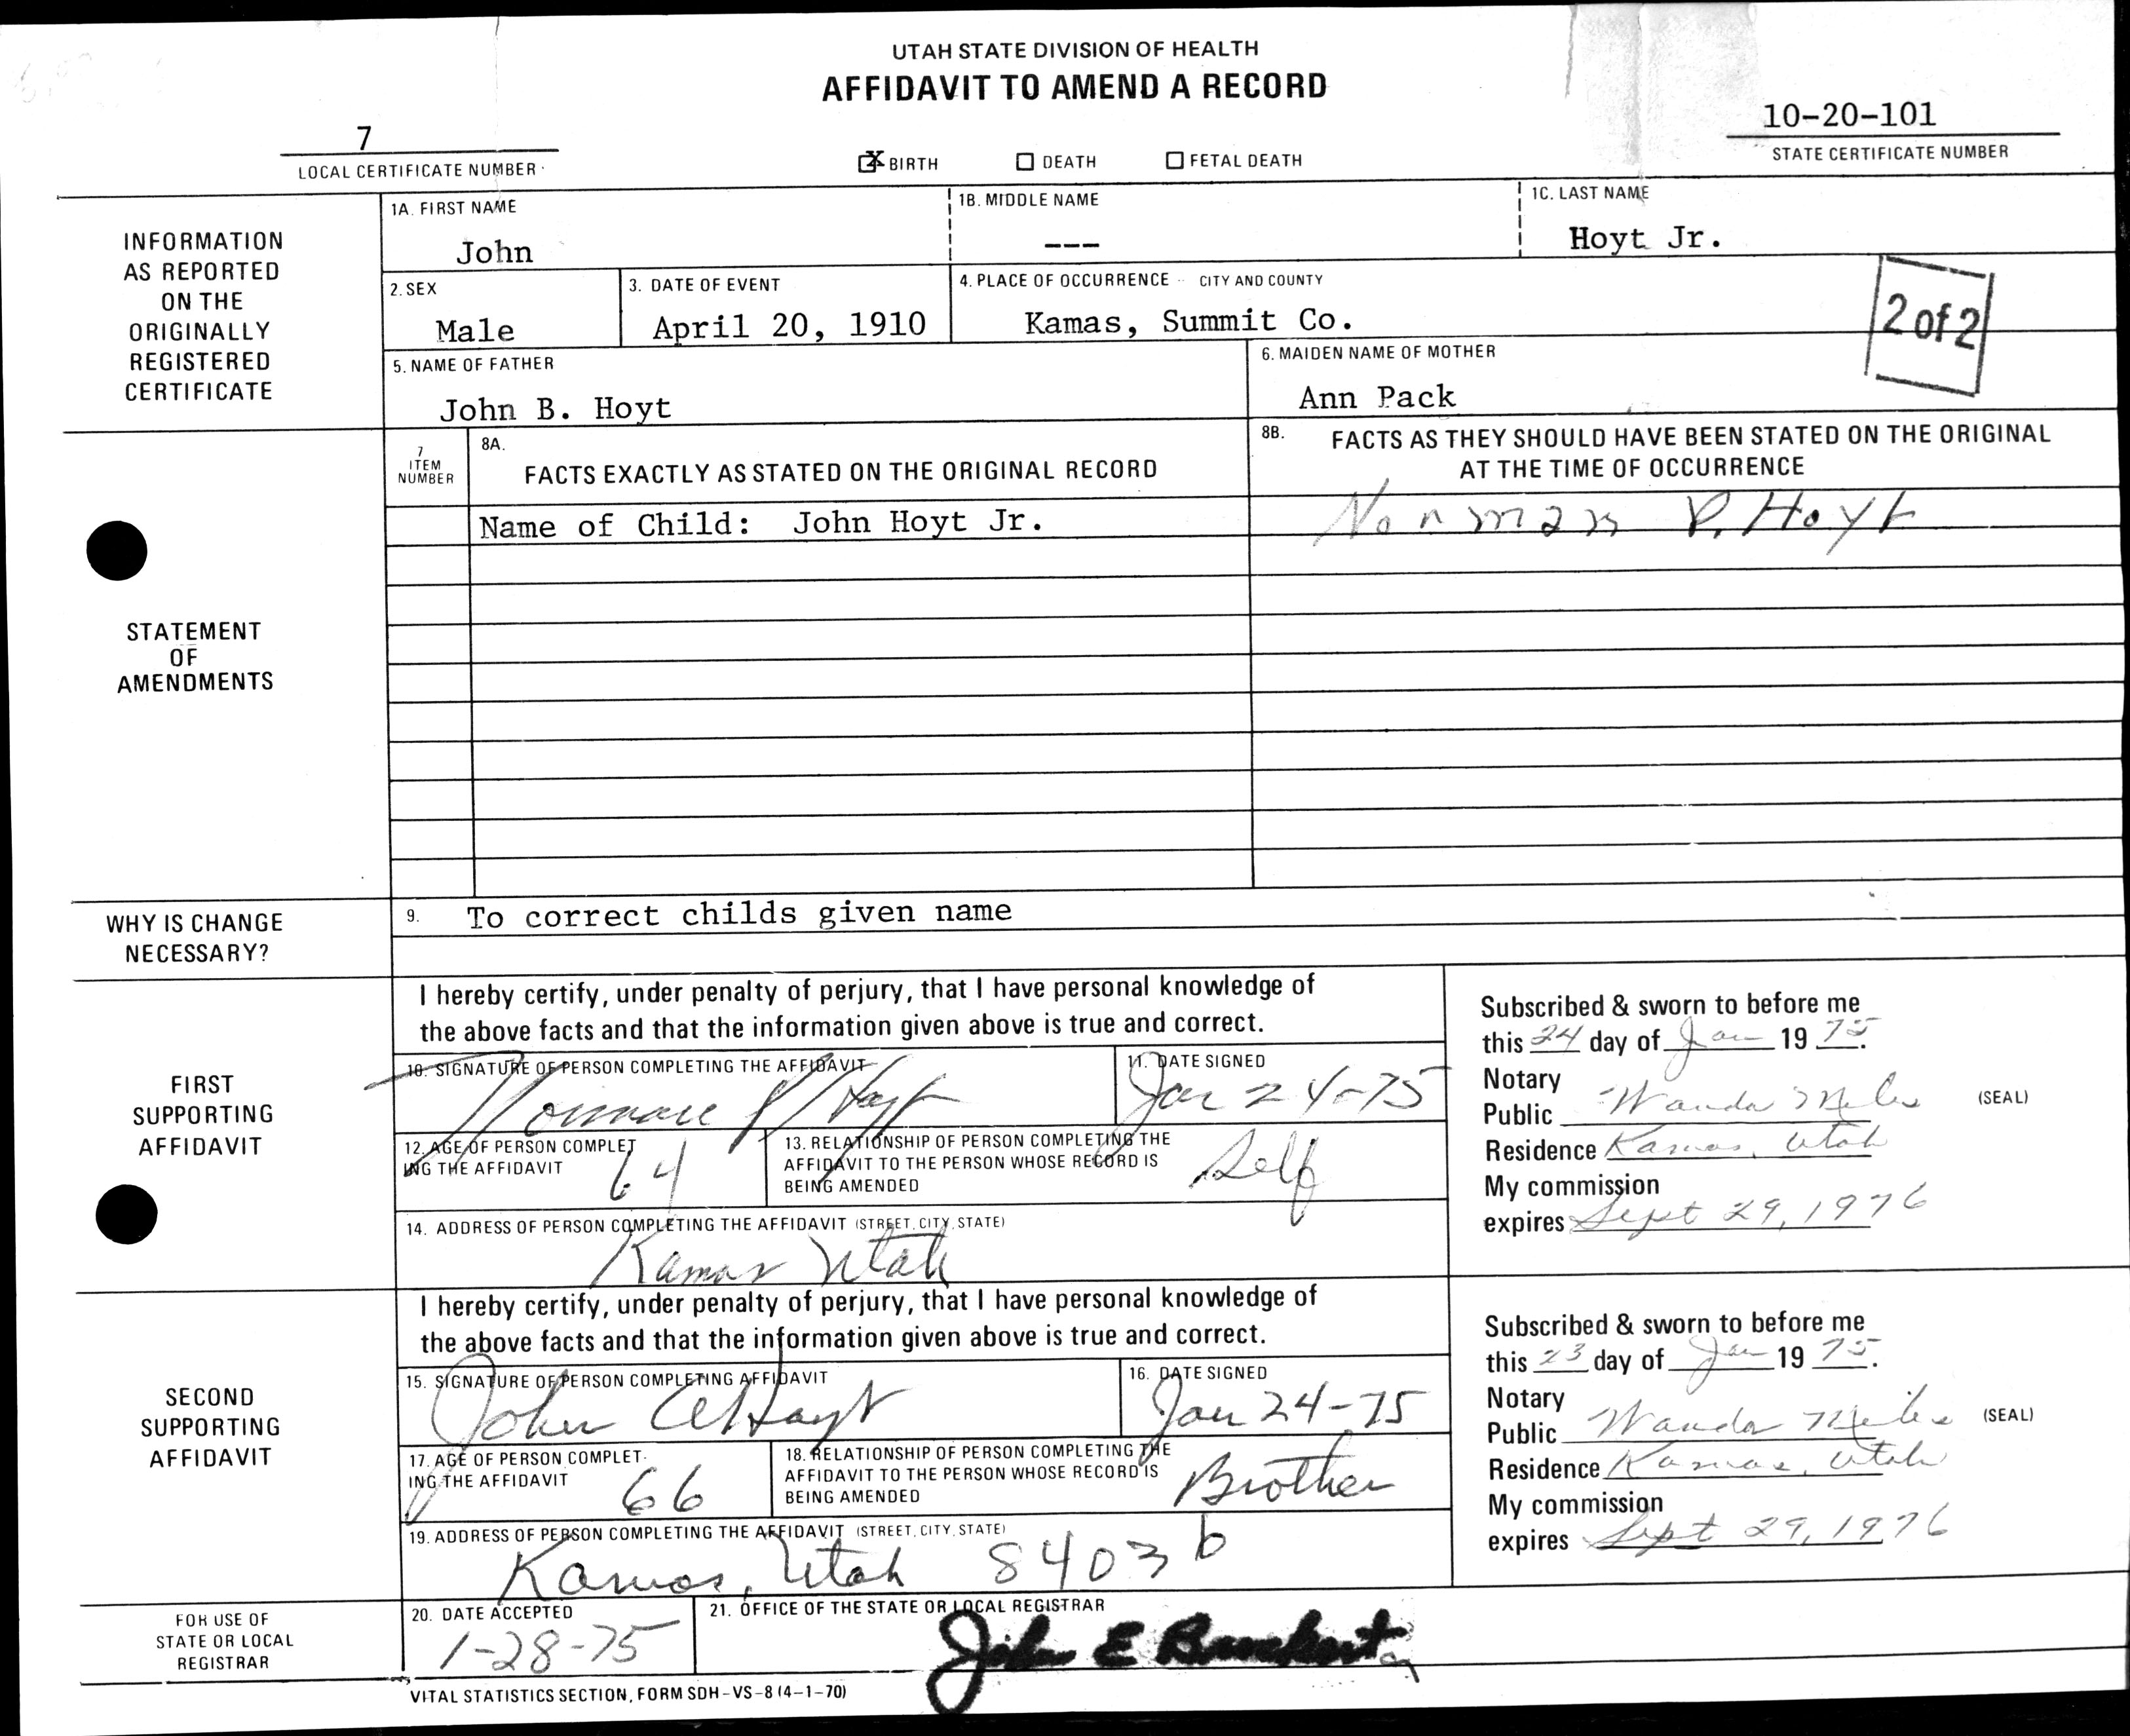 UTAH STATE DIVISION OF HEALTH
AFFIDAVIT TO AMEND A RECORD
7
LOCAL CERTIFICATE NUMBER
X BIRTH DEATH FETAL DEATH
10-20-101
STATE CERTIFICATE NUMBER
INFORMATION
AS REPORTED
ON THE
ORIGINALLY
REGISTERED
CERTIFICATE
1A. FIRST NAME
John
1B. MIDDLE NAME
---
1C. LAST NAME
Hoyt Jr.
2. SEX
Male
3. DATE OF EVENT
April 20, 1910
4. PLACE OF OCCURRENCE -- CITY AND COUNTY
Kamas, Summit Co.
2 of 2
5. NAME OF FATHER
John B. Hoyt
6. MAIDEN NAME OF MOTHER
Ann Pack
STATEMENT
OF
AMENDMENTS
7
ITEM
NUMBER
8A.
FACTS EXACTLY AS STATED ON THE ORIGINAL RECORD
8B. FACTS AS THEY SHOULD HAVE BEEN STATED ON THE ORIGINAL
AT THE TIME OF OCCURRENCE
Name of Child: John Hoyt Jr.
Norman P. Hoyt
WHY IS CHANGE
NECESSARY?
9. To correct childs given name
FIRST
SUPPORTING
AFFIDAVIT
I hereby certify, under penalty of perjury, that I have personal knowledge of
the above facts and that the information given above is true and correct.
10. SIGNATURE OF PERSON COMPLETING THE AFFIDAVIT
Norman P Hoyt
11. DATE SIGNED
Jan 24-75
12. AGE OF PERSON COMPLET
ING THE AFFIDAVIT
64
13. RELATIONSHIP OF PERSON COMPLETING THE
AFFIDAVIT TO THE PERSON WHOSE RECORD IS
BEING AMENDED
Self
14. ADDRESS OF PERSON COMPLETING THE AFFIDAVIT (STREET, CITY, STATE)
Kamas Utah
Subscribed & sworn to before me
this 24 day of Jan 19 75.
Notary
Public Wanda Miles (SEAL)
Residence Kamas, Utah
My commission
expires Sept 29, 1976
SECOND
SUPPORTING
AFFIDAVIT
I hereby certify, under penalty of perjury, that I have personal knowledge of
the above facts and that the information given above is true and correct.
15. SIGNATURE OF PERSON COMPLETING AFFIDAVIT
John Hoyt
16. DATE SIGNED
Jan 24-75
17. AGE OF PERSON COMPLET.
ING THE AFFIDAVIT
66
18. RELATIONSHIP OF PERSON COMPLETING THE
AFFIDAVIT TO THE PERSON WHOSE RECORD IS
BEING AMENDED
Brother
19. ADDRESS OF PERSON COMPLETING THE AFFIDAVIT (STREET, CITY, STATE)
Kamas, Utah 84036
Subscribed & sworn to before me
this 23 day of Jan 19 75.
Notary
Public Wanda Miles (SEAL)
Residence Kamas, Utah
My commission
expires Sept 29, 1976
FOR USE OF
STATE OR LOCAL
REGISTRAR
20. DATE ACCEPTED
1-28-75
21. OFFICE OF THE STATE OR LOCAL REGISTRAR
John E
VITAL STATISTICS SECTION, FORM SDH-VS-8 (4-1-70)